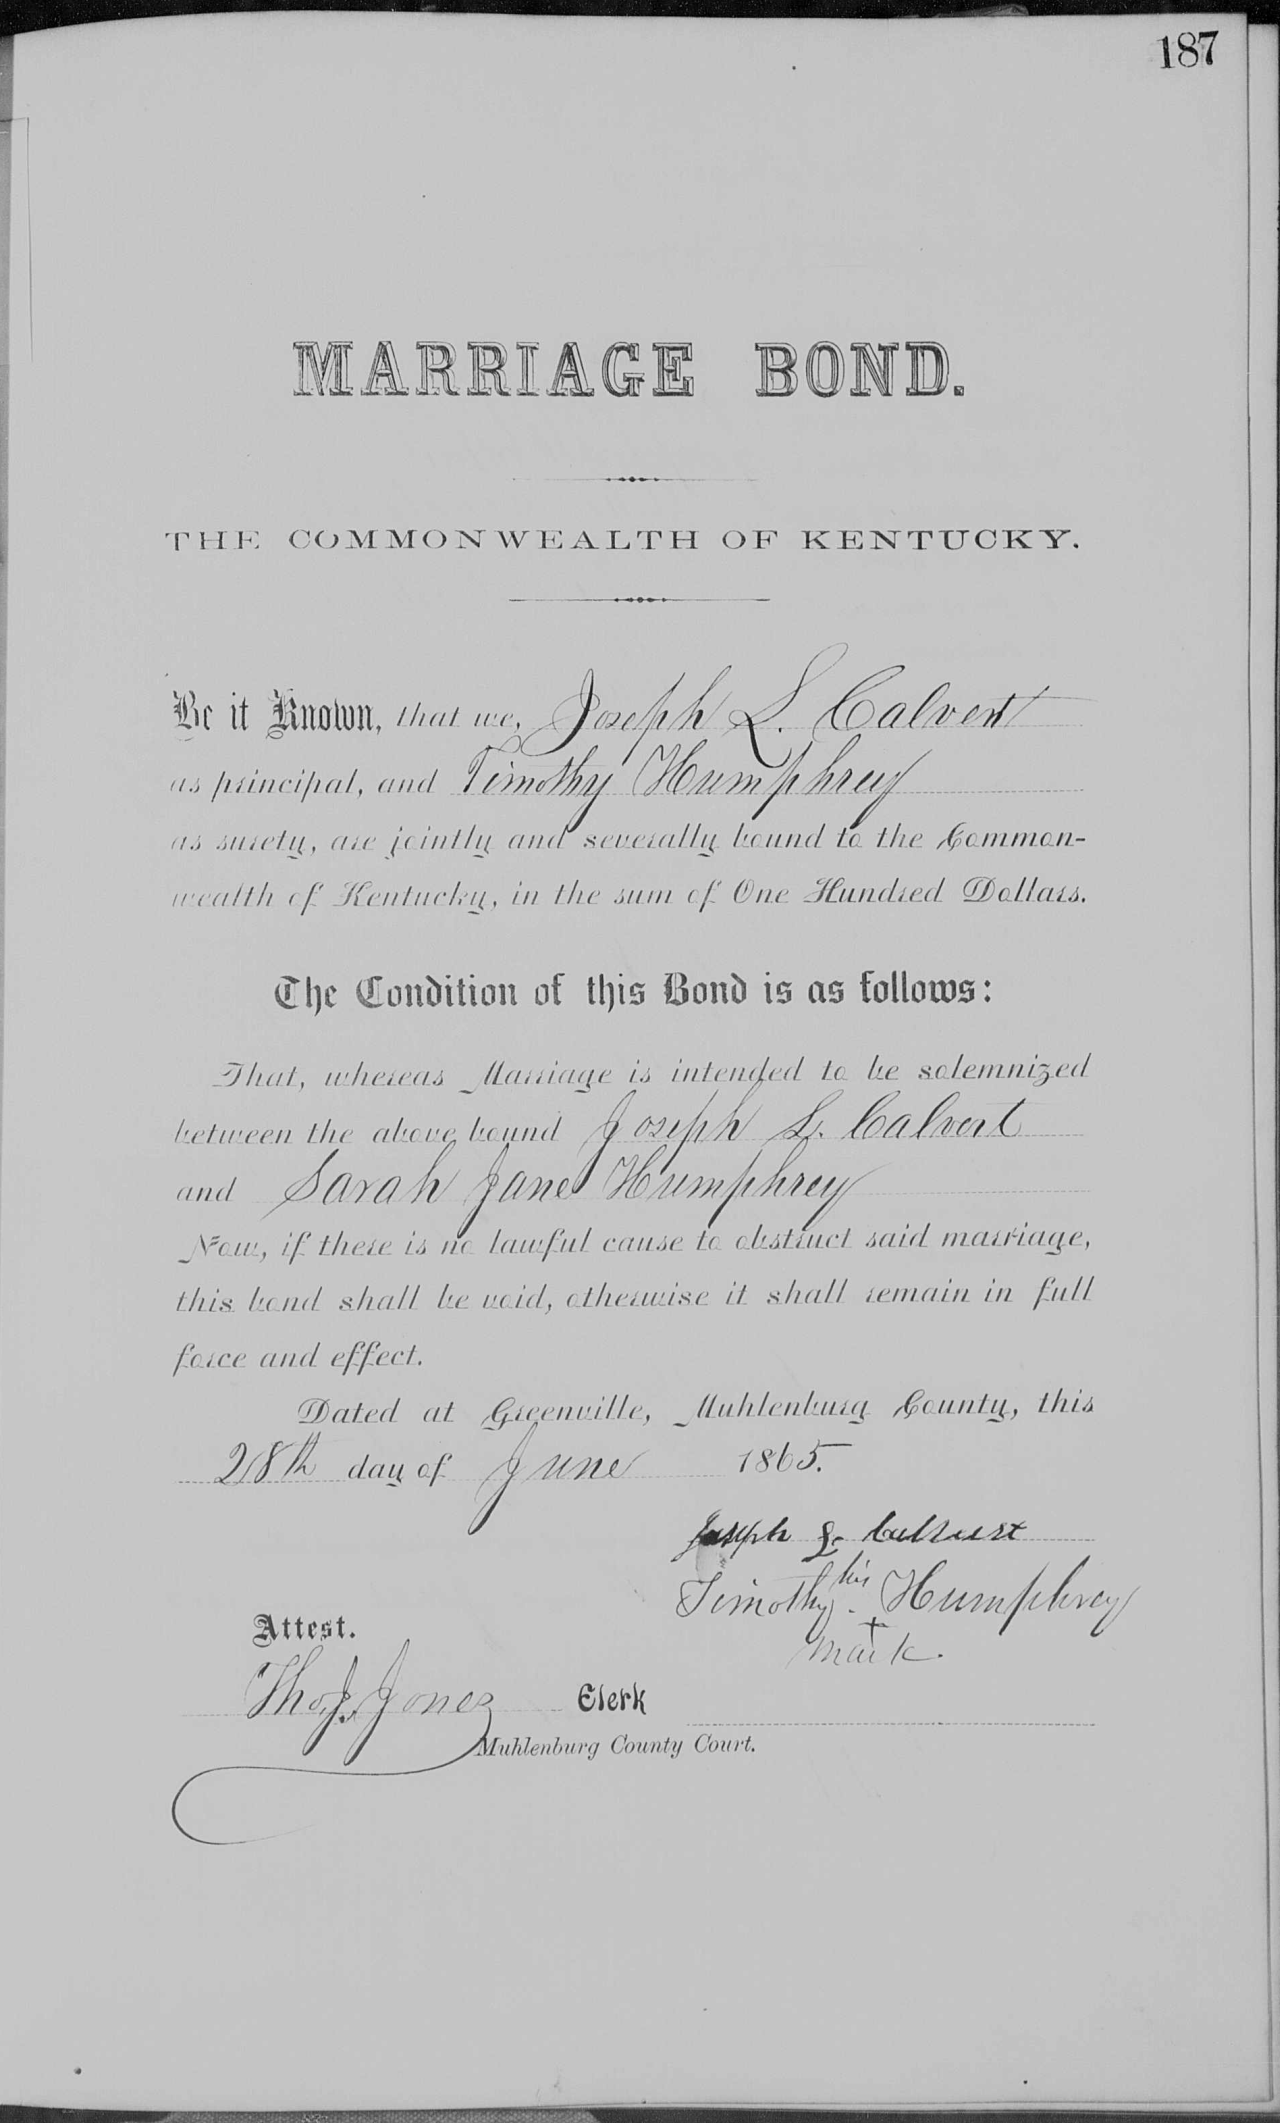 187
MARRIAGE BOND.
THE COMMONWEALTH OF KENTUCKY.
Be it Known, that we, Joseph L. Calvert
as principal, and Timothy Humphrey
as surety, are jointly and severally bound to the Common-
wealth of Kentucky, in the sum of One Hundred Dollars.
The Condition of this Bond is as follows:
That, whereas Marriage is intended to be solemnized
between the above bound Joseph L. Calvert
and Sarah Jane Humphrey
Now, if there is no lawful cause to obstruct said marriage,
this bond shall be void, otherwise it shall remain in full
force and effect.
Dated at Greenville, Muhlenburg County, this
28th day of June 1865.
Joseph L. Calvert
Timothy his Humphrey
+
mark.
Attest.
Tho. J. Jones Clerk
Muhlenburg County Court.